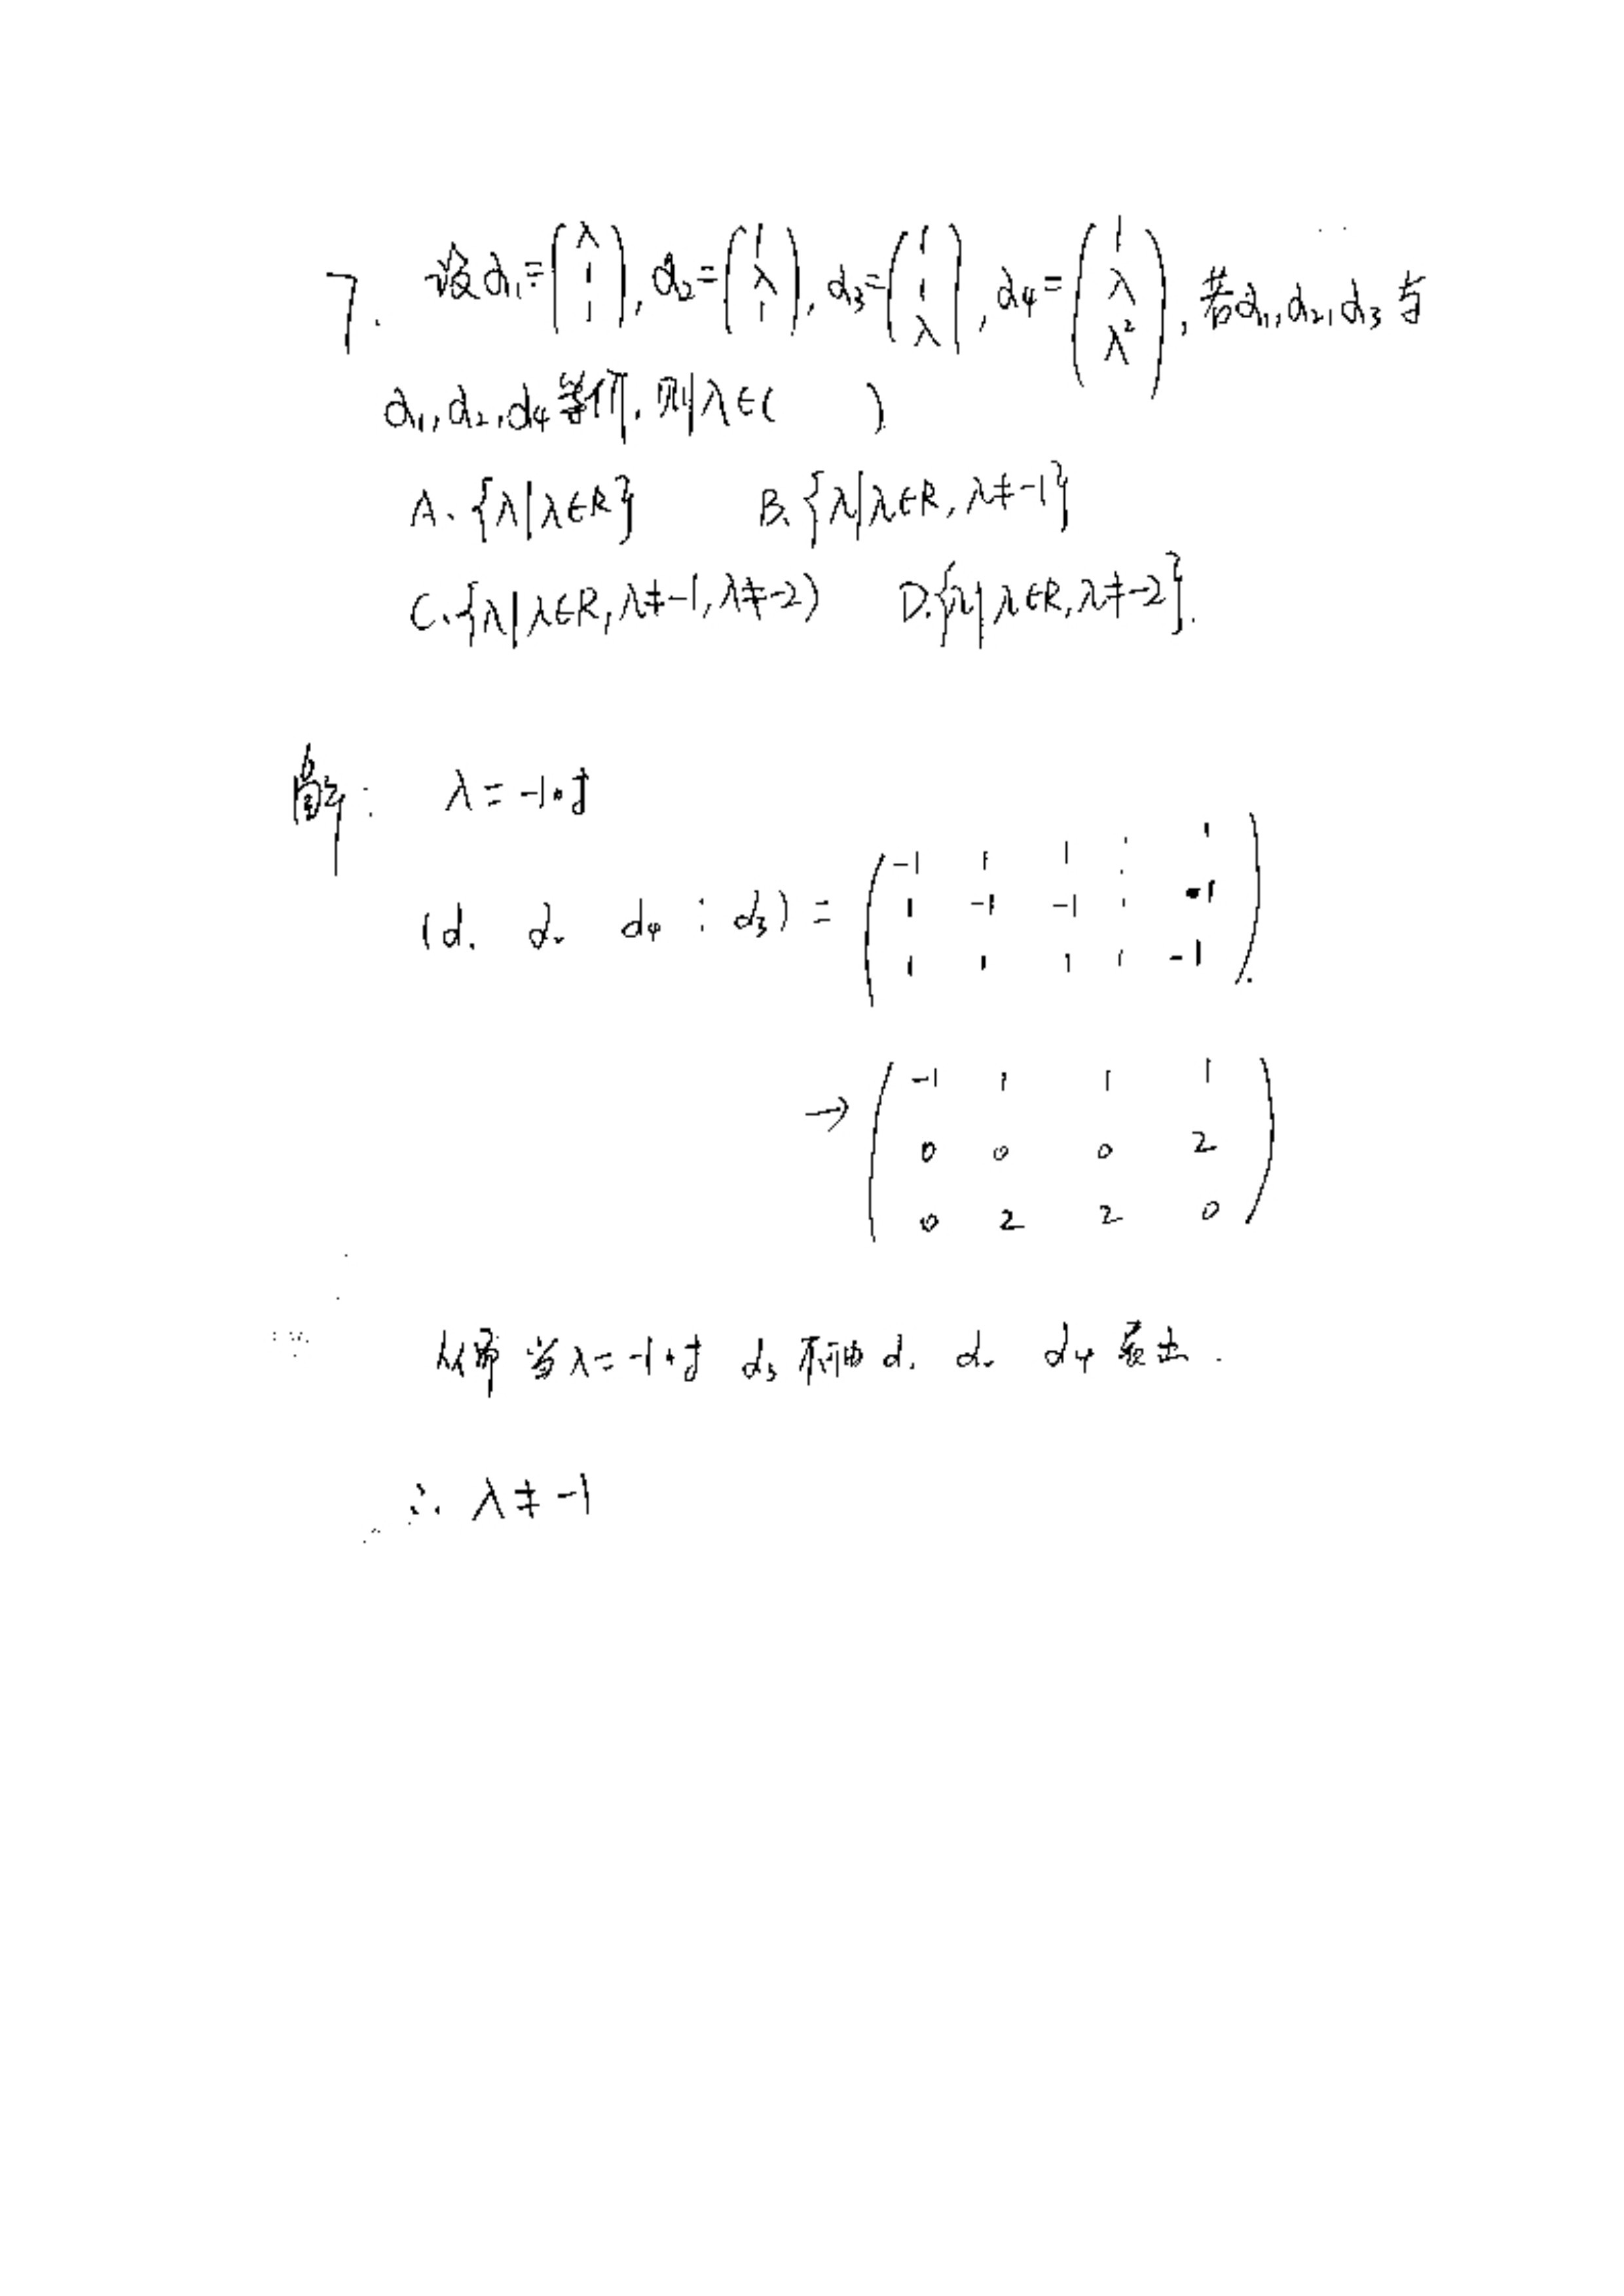 7. 设α₁=(λ 1 1), α₂=(1 λ 1), α₃=(1 1 λ), α₄=(1 λ λ²), 若α₁,α₂,α₃与
α₁,α₂,α₄等价,则λ∈( )
A、{λ|λ∈R} B、{λ|λ∈R, λ≠-1}
C、{λ|λ∈R, λ≠-1, λ≠-2) D.{λ|λ∈R, λ≠-2}.
解: λ=-1时
(α₁ α₂ α₄ ⋮ α₃) = (-1 1 1 ⋮ 1
1 -1 -1 ⋮ 1
1 1 1 ⋮ -1).
→ (-1 1 1 1
0 0 0 2
0 2 2 0)
从而当λ=-1时 α₃不可由α₁ α₂ α₄表出.
∴ λ≠-1